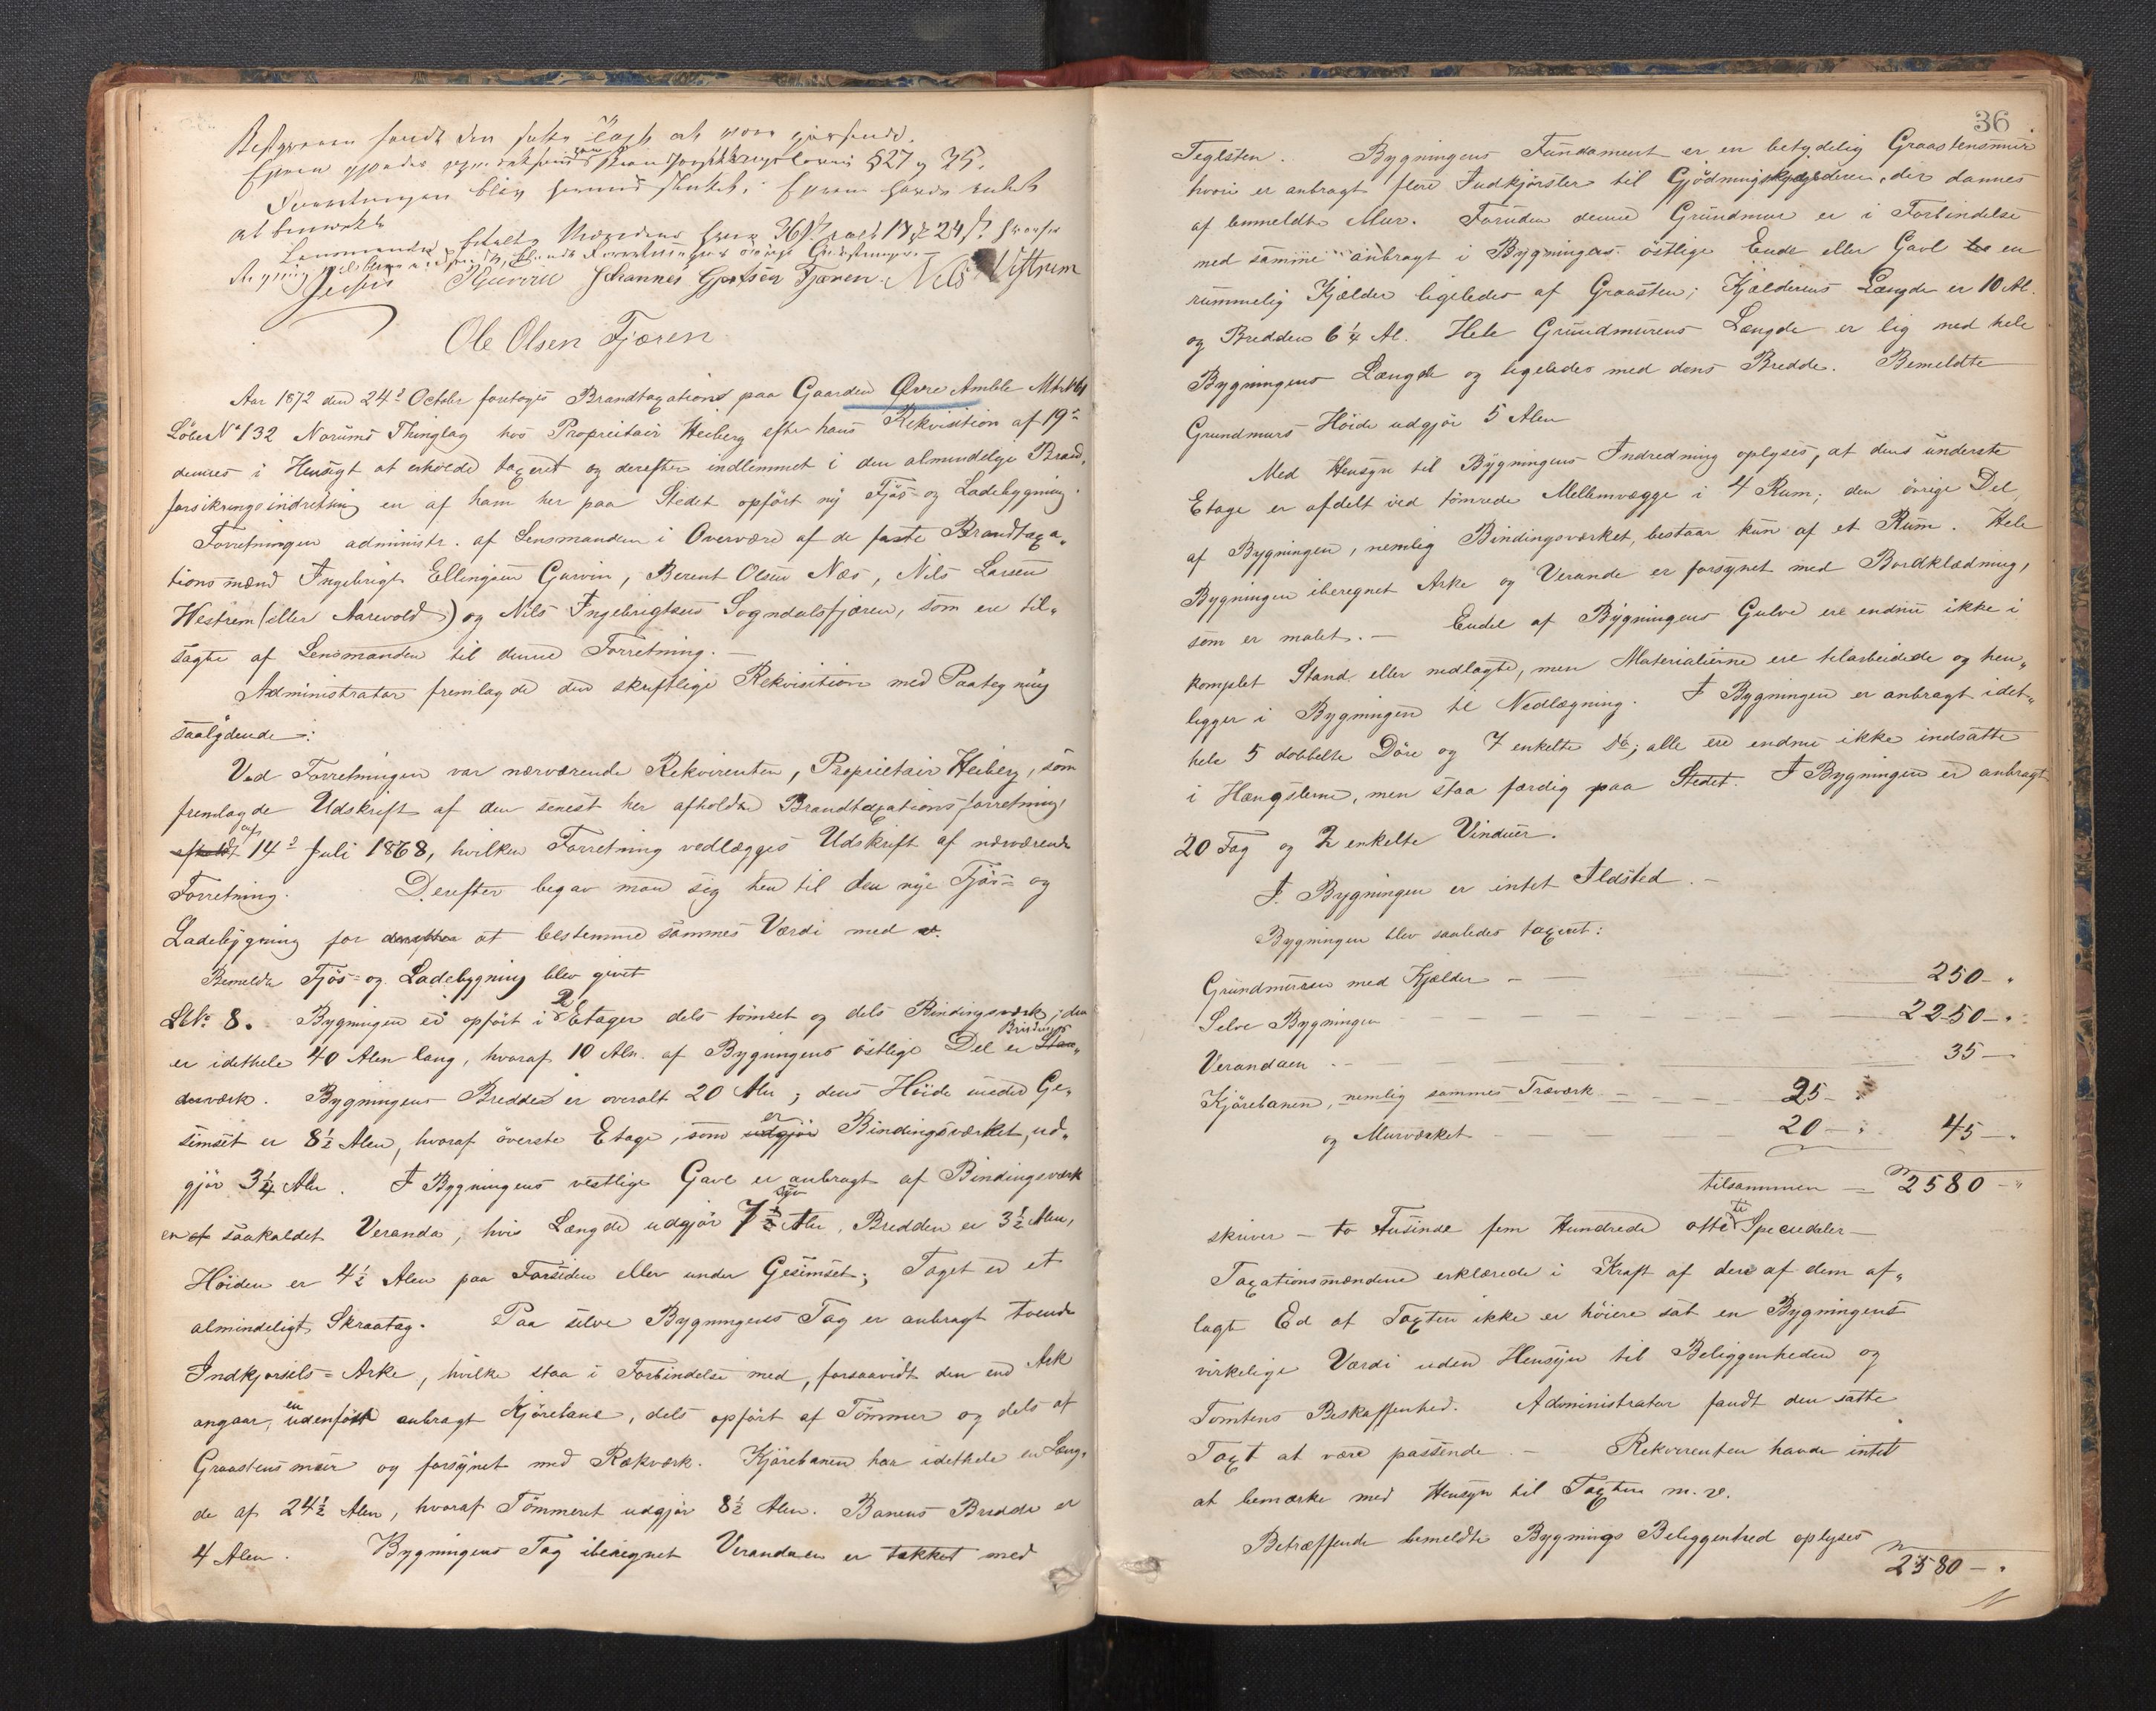 Bestyreren fandt den satte Taxt at være passende.
Eieren gjordes opmærksom paa Brandforsikringslovens § 27 og 35.
Forretningen blev hermed sluttet. Eieren havde intet
at bemærke
Ole Olsen Fjæren
Johannes Fjæren. Nils Vistrem
Aar 1872 den 24de October foretoges Brandtaxations paa Gaarden Øvre Amble Mtr No 61
Løbe No 132 Norums Thinglag hos Proprietair Heiberg efter hans Rekvisition af 19de
dennes i Hensigt at erholde taxeret og derefter indlemmet i den almindelige Brand-
forsikringsindretning en af ham her paa Stedet opført ny Fjøs- og Ladebygning.
Forretningen administr. af Lensmanden i Overvære af de faste Brandtaxa-
tionsmænd Ingebrigt Ellingsen Gurvin, Berent Olsen Næs, Nils Larsen
Hestrem (eller Aarevold) og Nils Ingebrigtsen Sogndalsfjæren, som ere til-
sagte af Lensmanden til denne Forretning. —
Administrator fremlagde den skriftlige Rekvisition med Paategning
saalydende:
Ved Forretningen var nærværende Rekvirenten, Proprietair Heiberg, som
fremlagde Udskrift af den senest her afholdte Brandtaxationsforretning
af 14de Juli 1868, hvilken Forretning vedlægges Udskrift af nærværende
Forretning. Derefter begav man sig hen til den nye Fjøs- og
Ladebygning for at bestemme sammes Værdi med v.
Bemeldte Fjøs- og Ladebygning blev givet
Lit No 8. Bygningen er opført i 2 Etager dels tømret og dels Bindingsværk; den
er idethele 40 Alen lang, hvoraf 10 Aln. af Bygningens östlige Del er Bindings-
værk. Bygningens Bredde er overalt 20 Aln; dens Høide under Ge-
simset er 8½ Alen, hvoraf överste Etage, som er Bindingsværket, ud-
gjör 3¼ Aln. I Bygningens vestlige Gavl er anbragt af Bindingsværk
en saakaldet Veranda, hvis Længde udgjör 7½ Aln, Bredden er 3½ Alen,
Höiden er 4½ Alen paa Forsiden eller under Gesimset; Taget er et
almindeligt Skraatag. Paa selve Bygningens Tag er anbragt tvende
Indkjørsels-Arke, hvilke staa i Forbindelse med, forsaavidt den ene Ark
angaar, en udenfor anbragt Kjörebane, dels opfört af Tömmer og dels af
Graastensmuur og forsynet med Rækværk. Kjörebanen har idethele en Læng-
de af 24½ Alen, hvoraf Tömmeret udgjör 8½ Alen. Banens Bredde er
4 Alen. Bygningens Tag iberegnet Verandaen er tækket med
36
Teglsten. Bygningens Fundament er en betydelig Graastensmuur
hvori er anbragt flere Indkjörsler til Gjödningskjælderen, der dannes
af bemeldte Mur. Foruden denne Grundmur er i Forbindelse
med samme anbragt i Bygningens östlige Ende eller Gavl en
rummelig Kjælder ligeledes af Graasten; Kjælderens Længde er 10 Al.
og Bredden 6¼ Al. Hele Grundmurens Længde er lig med hele
Bygningens Længde og ligeledes med dens Bredde. Bemeldte
Grundmurs Höide udgjör 5 Alen
Med Hensyn til Bygningens Indredning oplyses, at dens underste
Etage er afdelt ved tömrede Mellemvægge i 4 Rum; den övrige Del
af Bygningen, nemlig Bindingsværket, bestaar kun af et Rum. Hele
Bygningen iberegnet Arke og Verande er forsynet med Bordklædning,
som er malet. — Endel af Bygningens Gulve ere endnu ikke i
komplet Stand eller nedlagte, men Materialierne ere tilarbeidede og hen-
ligger i Bygningen til Nedlægning. I Bygningen er anbragt idet-
hele 5 dobbelte Döre og 7 enkelte do; alle ere endnu ikke indsatte
i Hængslerne, men staa færdig paa Stedet. I Bygningen er anbragt
20 Fag og 2 enkelte Vinduer.
I Bygningen er intet Ildsted. —
Bygningen blev saaledes taxeret:
Grundmuren med Kjælder — 250 — "
Selve Bygningen — 2250 — "
Verandaen — 35 —
Kjörebanen, nemlig sammes Træværk — 25 — "
og Murværket — 20 — " 45 — "
tilsammen — 2580 — "
skriver — to Tusinde fem Hundrede otteti Speciedaler —
Taxationsmændene erklærede i Kraft af den af dem af-
lagte Ed at Taxten ikke er höiere sat en Bygningens
virkelige Værdi uden Hensyn til Beliggenheden og
Tomtens Beskaffenhed. Administrator fandt den satte
Taxt at være passende. — Rekvirenten havde intet
at bemærke med Hensyn til Taxten m. v.
Betræffende bemeldte Bygnings Beliggenhed oplyses
2580 — "